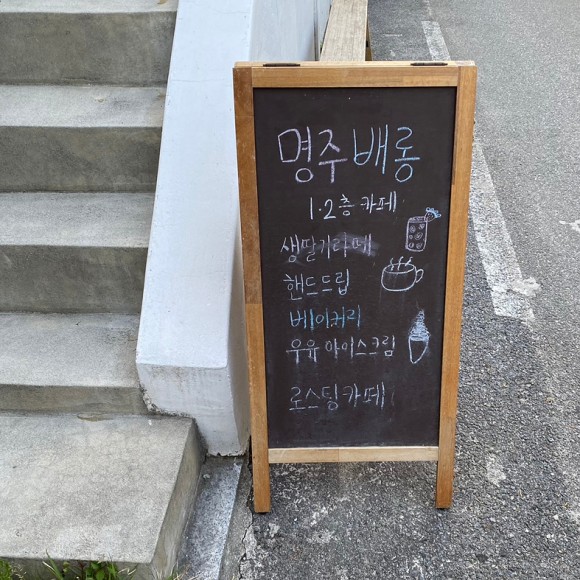 명주배롱
1.2층 카페
생딸기라떼
핸드드립
베이커리
우유 아이스크림
로스팅 카페